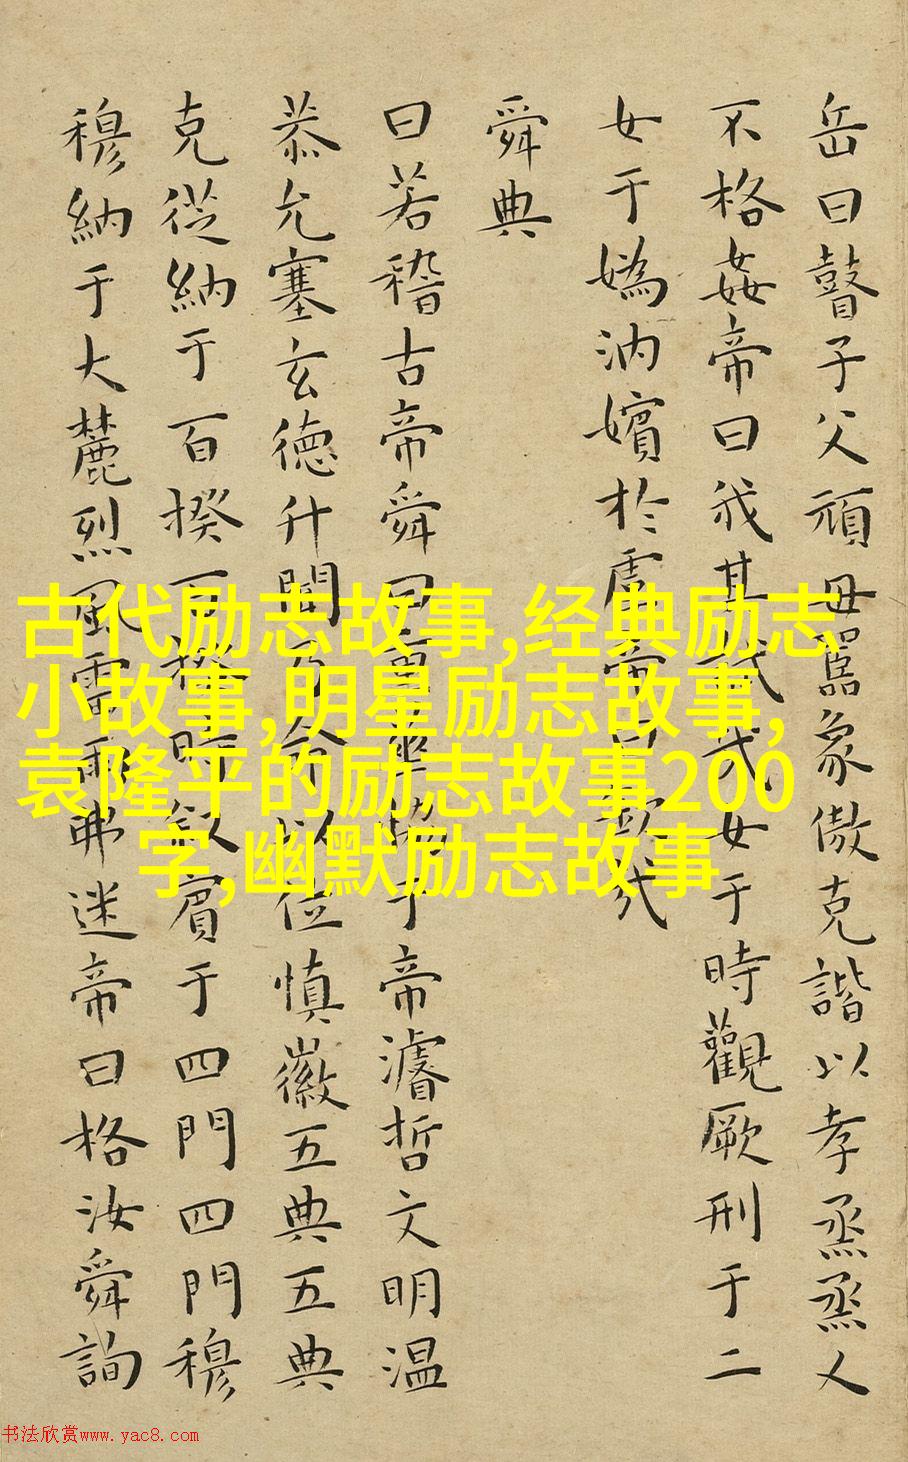 岳曰瞽子父頑母嚚象傲克諧以孝烝烝乂
不格姦帝曰我其試哉女于時觀厥刑于二
女于媯汭嬪於虞帝曰欽哉
舜典
曰若稽古帝舜曰重華協于帝濬哲文明温
恭允塞玄德升聞乃命以位慎徽五典五典
克從納于百揆百揆時敘賓于四門四門穆
穆納于大麓烈風雷雨弗迷帝曰格汝舜詢
古代励志故事,经典励志
小故事,明星励志故事,
袁隆平的励志故事200
字,幽默励志故事
书法欣赏www.yac8.com